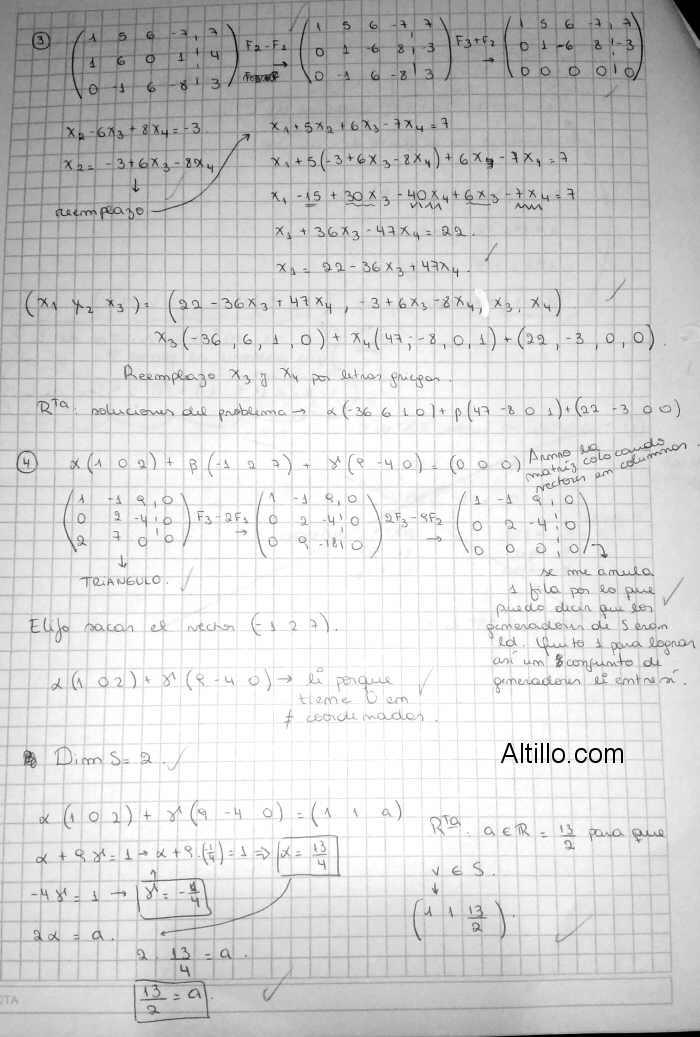 3) ( 1 5 6 -7 | 7 ) F2-F1 → ( 1 5 6 -7 | 7 ) F3+F2 → ( 1 5 6 -7 | 7 )
( 1 6 0 1 | 4 ) ( 0 1 -6 8 | -3 ) ( 0 1 -6 8 | -3 )
( 0 -1 6 -8 | 3 ) ( 0 -1 6 -8 | 3 ) ( 0 0 0 0 | 0 )
x2 - 6x3 + 8x4 = -3
x2 = -3+6x3-8x4
↓
reemplazo
x1+5x2+6x3-7x4=7
x1+5(-3+6x3-8x4)+6x3-7x4=7
x1 -15 + 30x3 -40x4+6x3-7x4=7
x1 + 36x3 -47x4 = 22.
x1 = 22-36x3+47x4.
(x1 x2 x3) = (22-36x3+47x4, -3+6x3-8x4, x3, x4)
x3(-36, 6, 1, 0) + x4(47, -8, 0, 1) + (22, -3, 0, 0).
Reemplazo x3 y x4 por letras griegas.
Rta: soluciones del problema → α(-36 6 1 0)+β(47 -8 0 1)+(22 -3 0 0)
4) α(1 0 2)+β(-1 2 7)+γ(9 -4 0)=(0 0 0)
Armo la
matriz colocando
vectores en columnas.
( 1 -1 9 | 0 ) F3-2F1 → ( 1 -1 9 | 0 ) 2F3-9F2 → ( 1 -1 9 | 0 )
( 0 2 -4 | 0 ) ( 0 2 -4 | 0 ) ( 0 2 -4 | 0 )
( 2 7 0 | 0 ) ( 0 9 -18 | 0 ) ( 0 0 0 | 0 )
↓
TRIANGULO.
se me anula
1 fila por lo que
puedo decir que los
generadores de S eran
ld. Quito 1 para lograr
así un conjunto de
generadores li entre sí.
Elijo sacar el vector (-1 2 7).
α(1 0 2)+γ(9 -4 0) → li porque
tiene 0 en
≠ coordenadas.
Dim S = 2.
Altillo.com
α(1 0 2)+γ(9 -4 0)=(1 1 a)
α + 9γ = 1 → α+9.(¼)=1 ⇒ α = 13/4
-4γ = 1 → γ = -1/4
2α = a.
2 . 13/4 = a.
13/2 = a.
Rta: a∈R = 13/2 para que
v ∈ S.
↓
(1 1 13/2).